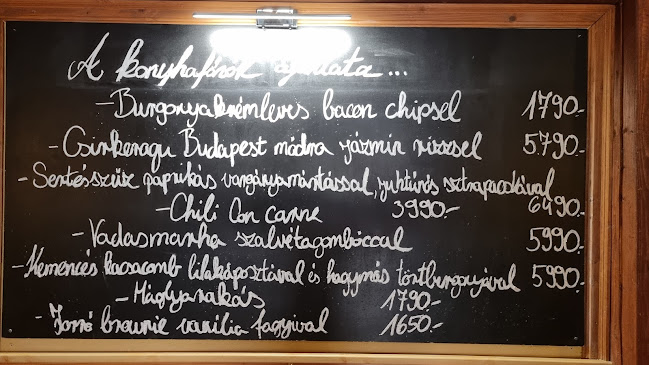 A konyhafőnök ajánlata...
- Burgonyakrémleves bacon chipsel 1790.-
- Csirkeragu Budapest módra jázmin rizzsel 5790.-
- Sertésszűz paprikás vargányamártással, juhtúrós sztrapacskával 6490.-
- Chili Con carne 3990.-
- Vadasmarha szalvétagombóccal 5990.-
- Kemencés kacsacomb lilakáposztával és hagymás törtburgonyával 5990.-
- Máglyarakás 1790.-
- Forró brownie vanília fagyival 1650.-